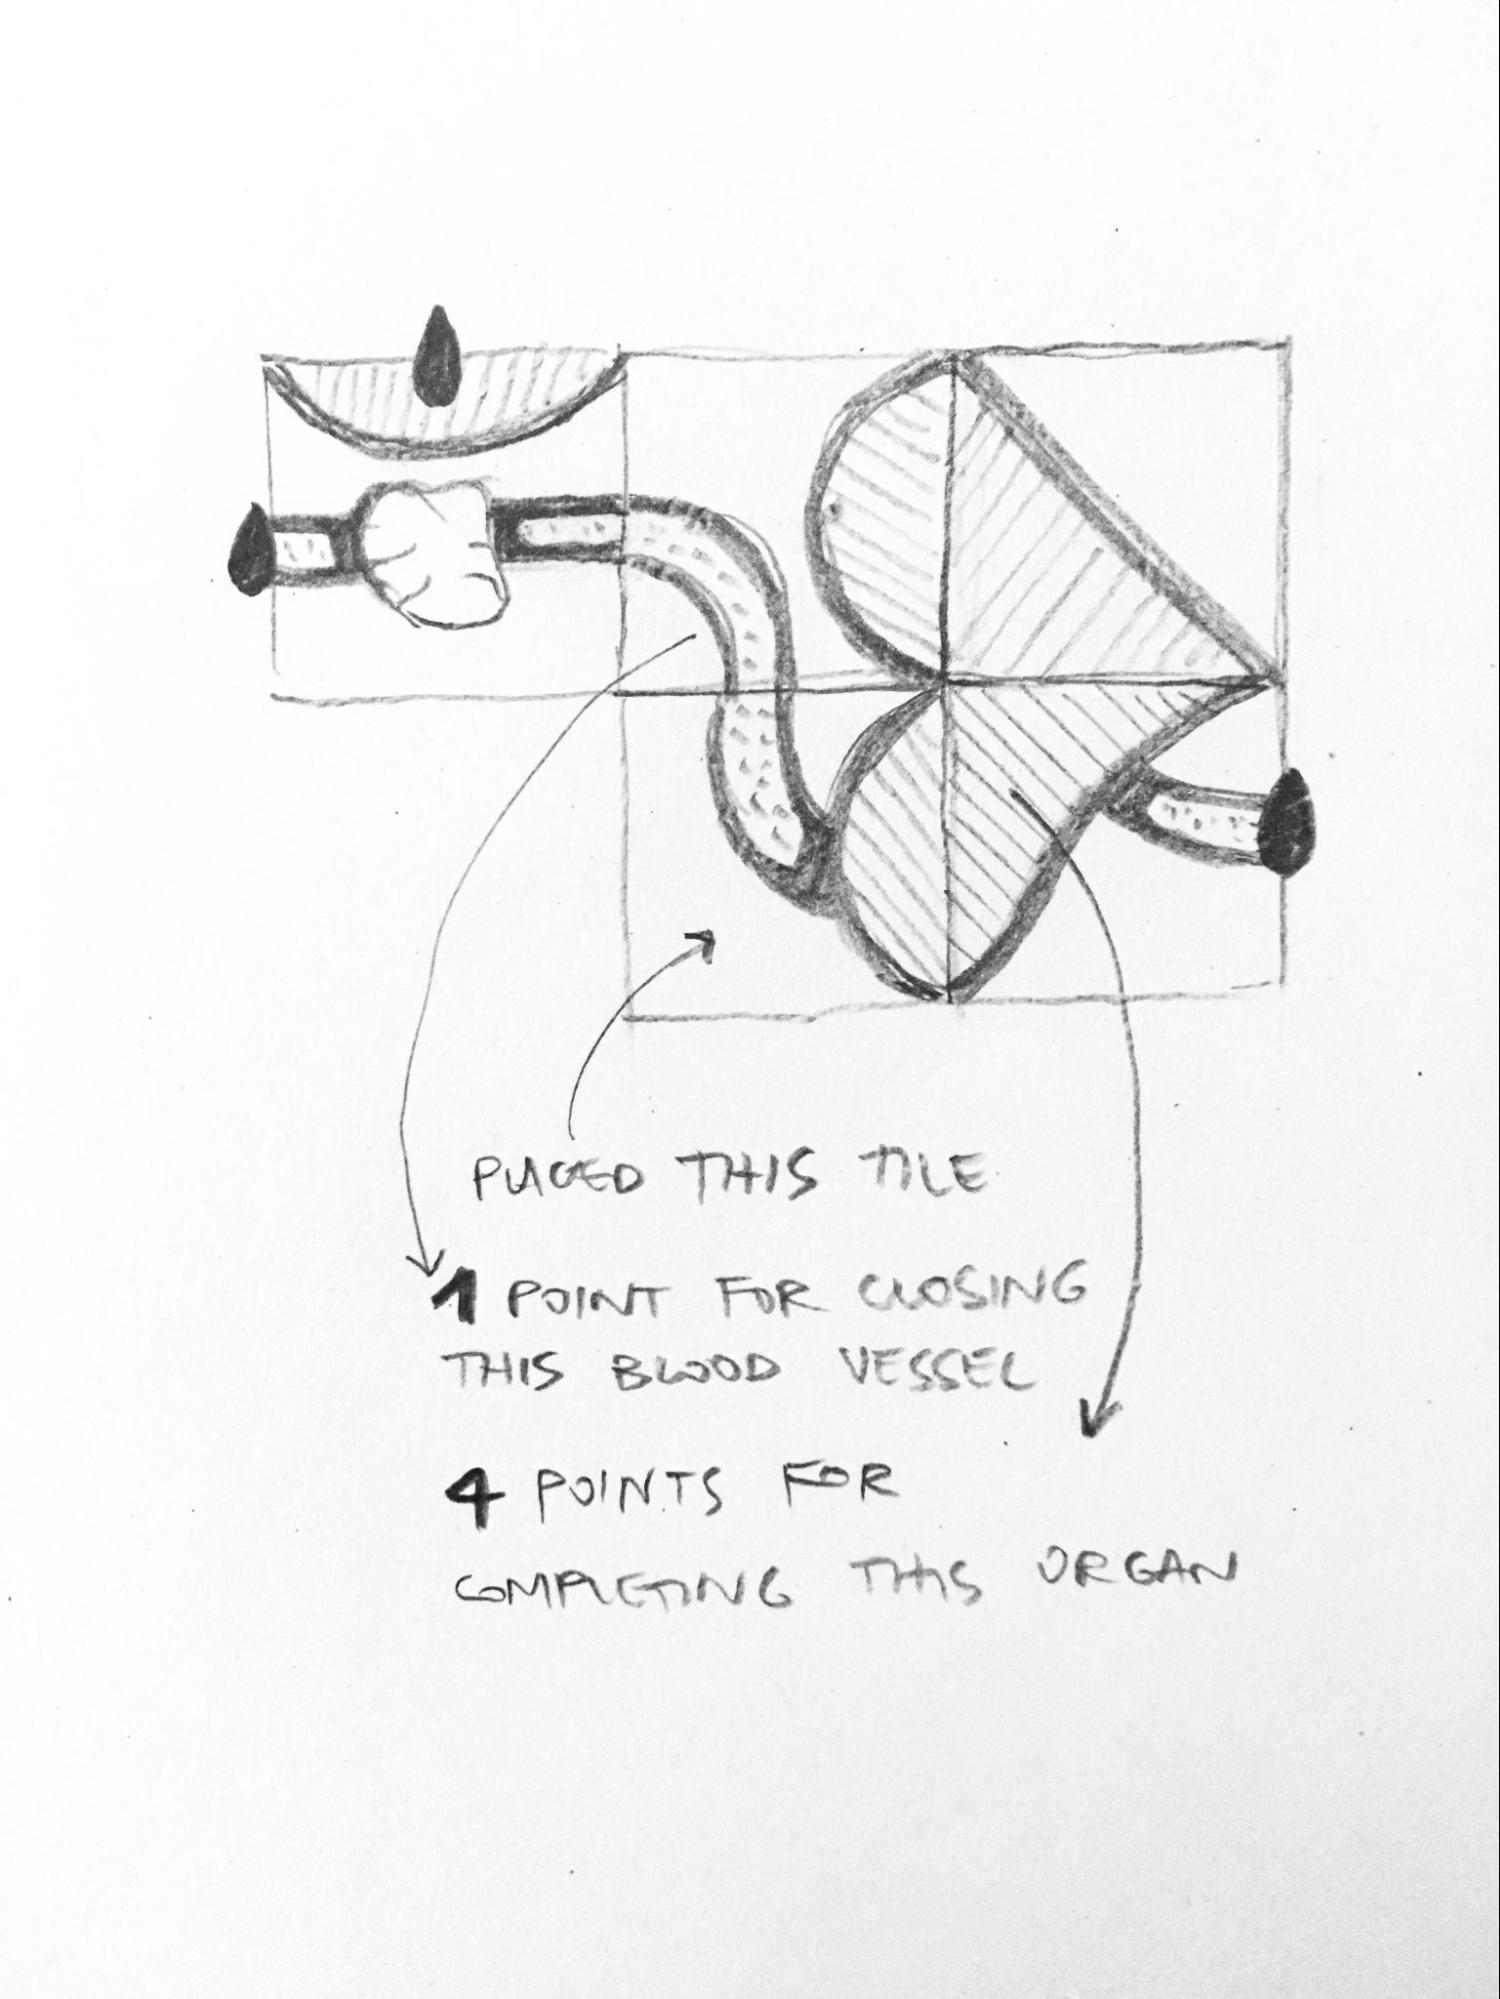 PLACED THIS TILE
1 POINT FOR CLOSING
THIS BLOOD VESSEL
4 POINTS FOR
COMPLETING THIS ORGAN